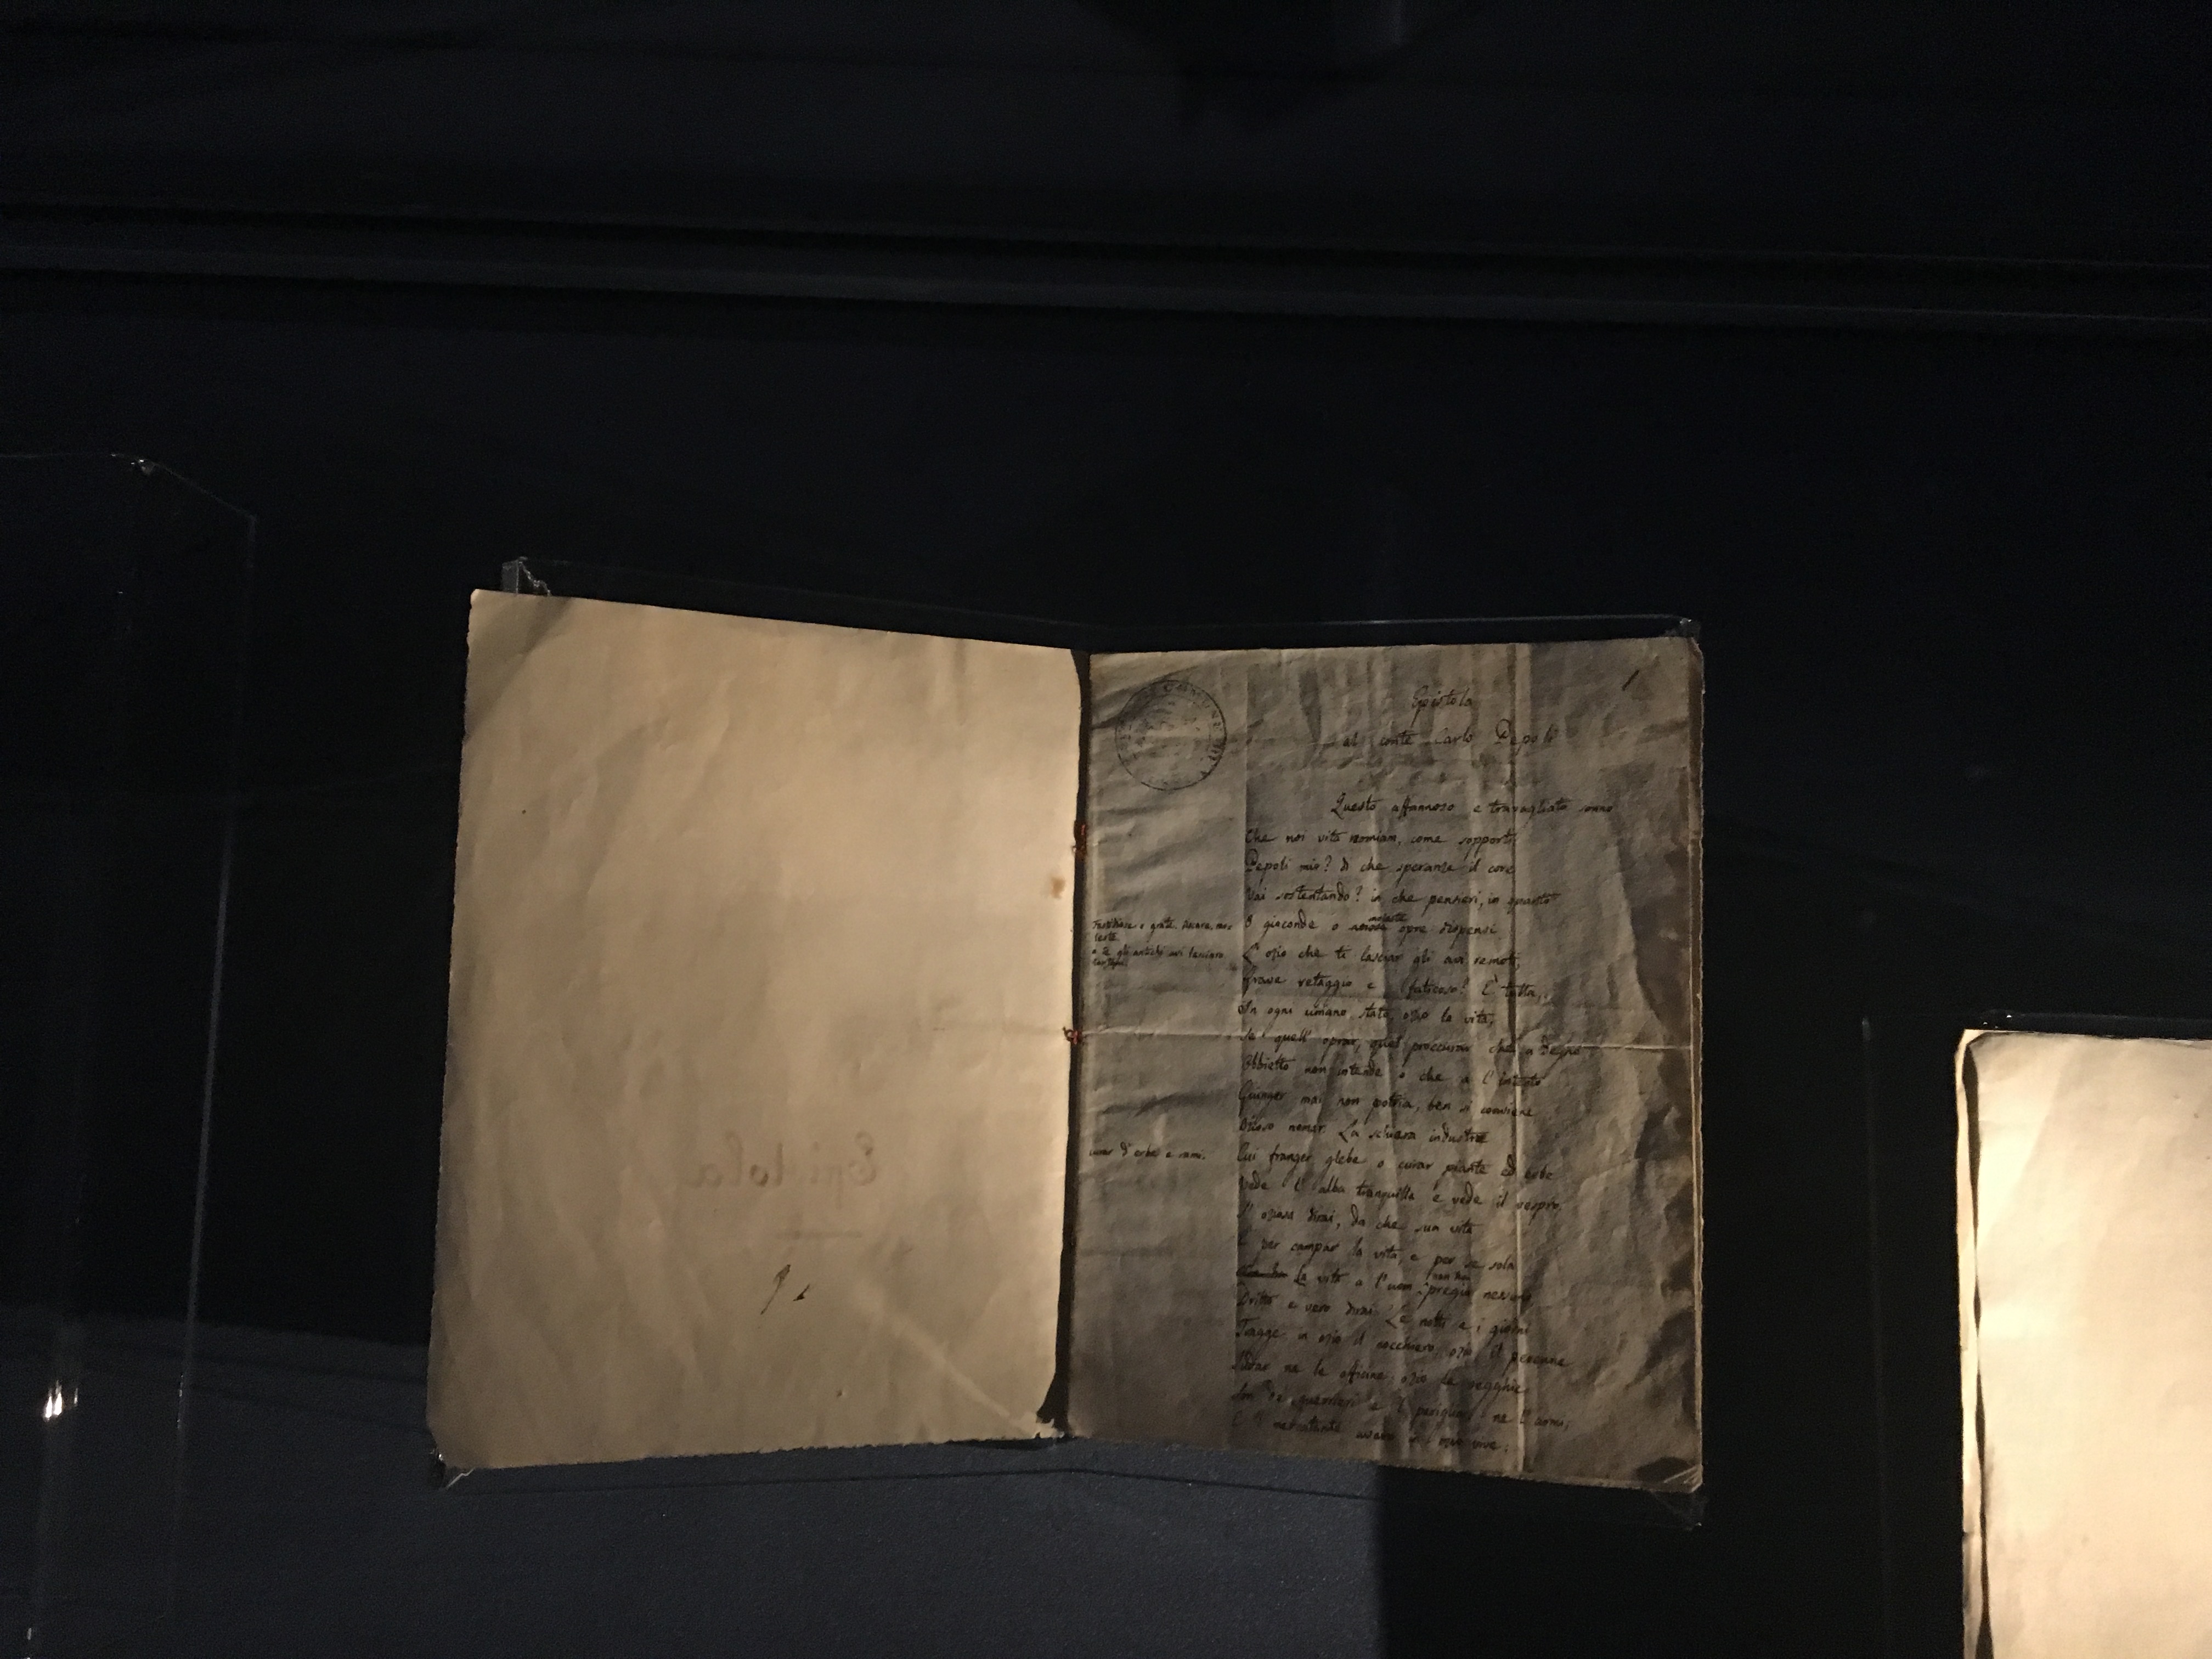 Epistola
Epistola
al conte Carlo Pepoli
1
Questo affannoso e travagliato sonno
Che noi vita nomiam, come sopporti,
Pepoli mio? di che speranze il core
Vai sostentando? in che pensieri, in quanto
O gioconde o moleste opre dispensi
L'ozio che ti lasciar gli avi remoti,
Grave retaggio e faticoso? È tutta,
In ogni umano stato, ozio la vita,
Se quell' oprar, quel proccurar che a degno
Obbietto non intende o che a l' intento
Giunger mai non potria, ben si conviene
Ozioso nomar. La schiera industre
Cui franger glebe o curar piante ed erbe
Vede l' alba tranquilla e vede il vespro,
S' oziosa dirai, da che sua vita
È per campar la vita, e per se sola
La vita a l' uom non ha pregio nessuno,
Dritto e vero dirai. Le notti e i giorni
Tragge in ozio il nocchiero; ozio il perenne
Sudar ne le officine; ozio le vegghie
Son de' guerrieri e i perigli ne l' armi;
E 'l mercatante avaro in ozio vive:
o te gli antichi avi lasciaro
d' erbe e rami.